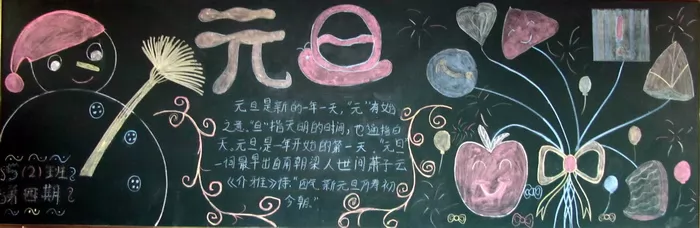 元旦
元旦是新的一年一天,“元”有始
之意,“旦”指天明的时间,也通指白
天。元旦是一年开始的第一天。“元旦”
一词最早出自南朝梁人世间萧子云
《介雅》诗:“四气新元旦万寿初
今朝。”
5(2)班
第四期